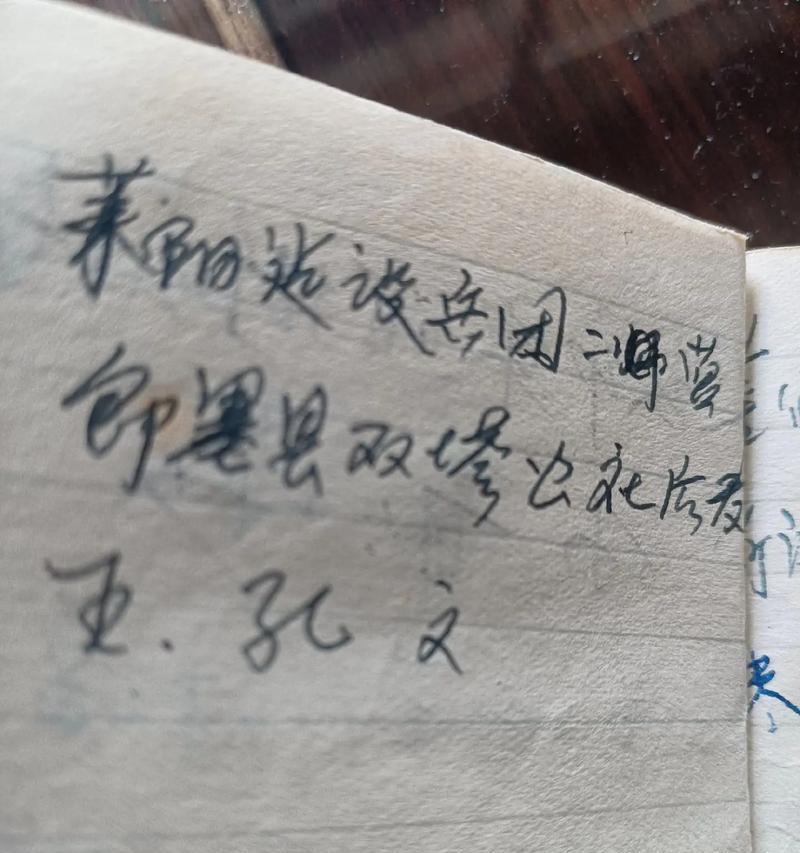 莱阳建设兵团二师营
即墨县双塔公社后
王.孔文